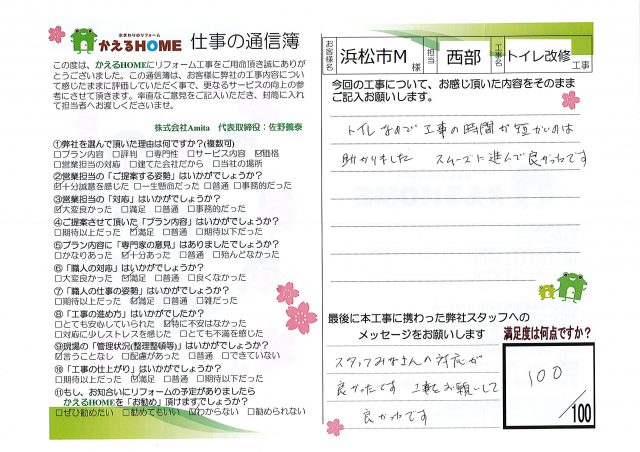 水まわりのリフォーム
かえるHOME 仕事の通信簿
この度は、かえるHOMEにリフォーム工事をご用命頂き誠にありが
とうございました。この通信簿は、お客様に弊社の工事内容について
感じたままに評価していただく事で、更なるサービスの向上の参
考にさせて頂きます。率直なご意見をご記入いただき、封筒に入れ
て担当者へお渡しくださいませ。
株式会社Amita 代表取締役：佐野義泰
①弊社を選んで頂いた理由は何ですか？(複数可)
□プラン内容 □評判 □専門性 □サービス内容 ☑価格
□営業担当の対応 □建てた会社だから □当社の場所
②営業担当の「ご提案する姿勢」はいかがでしょうか？
☑十分誠意を感じた □一生懸命だった □普通 □事務的だった
③営業担当の「対応」はいかがでしょうか？
☑大変良かった □満足 □普通 □事務的だった
④ご提案させて頂いた「プラン内容」はいかがでしょうか？
□期待以上だった ☑満足 □普通 □期待以下だった
⑤プラン内容に「専門家の意見」はありましたでしょうか？
□かなりあった ☑十分あった □普通 □殆んどなかった
⑥「職人の対応」はいかがでしょうか？
□大変良かった ☑満足 □普通 □良くなかった
⑦「職人の仕事の姿勢」はいかがでしょうか？
□期待以上だった ☑満足 □普通 □雑だった
⑧「工事の進め方」はいかがでしたか？
□とても安心していられた ☑特に不安はなかった
□対応に少しストレスを感じた □とても不満を感じた
⑨現場の「管理状況(整理整頓等)」はいかがでしょうか？
☑言うことなし □配慮があった □普通 □できていない
⑩「工事の仕上がり」はいかがでしょうか？
□期待以上だった ☑満足 □普通 □期待以下だった
⑪もし、お知合いにリフォームの予定がありましたら
かえるHOMEを「お勧め」頂けますでしょうか？
□ぜひ勧めたい □勧めてもいい ☑わからない □勧められない
お客様名 浜松市M 様 担当 西部 工事名 トイレ改修 工事
今回の工事について、お感じ頂いた内容をそのまま
ご記入お願いします。
トイレなので工事の時間が短かいのは
助かりました スムーズに進んで良かったです
最後に本工事に携わった弊社スタッフへ
のメッセージをお願いします
スタッフみなさんの対応が
良かったです 工事をお願いして
良かったです
満足度は何点ですか？
100
/100